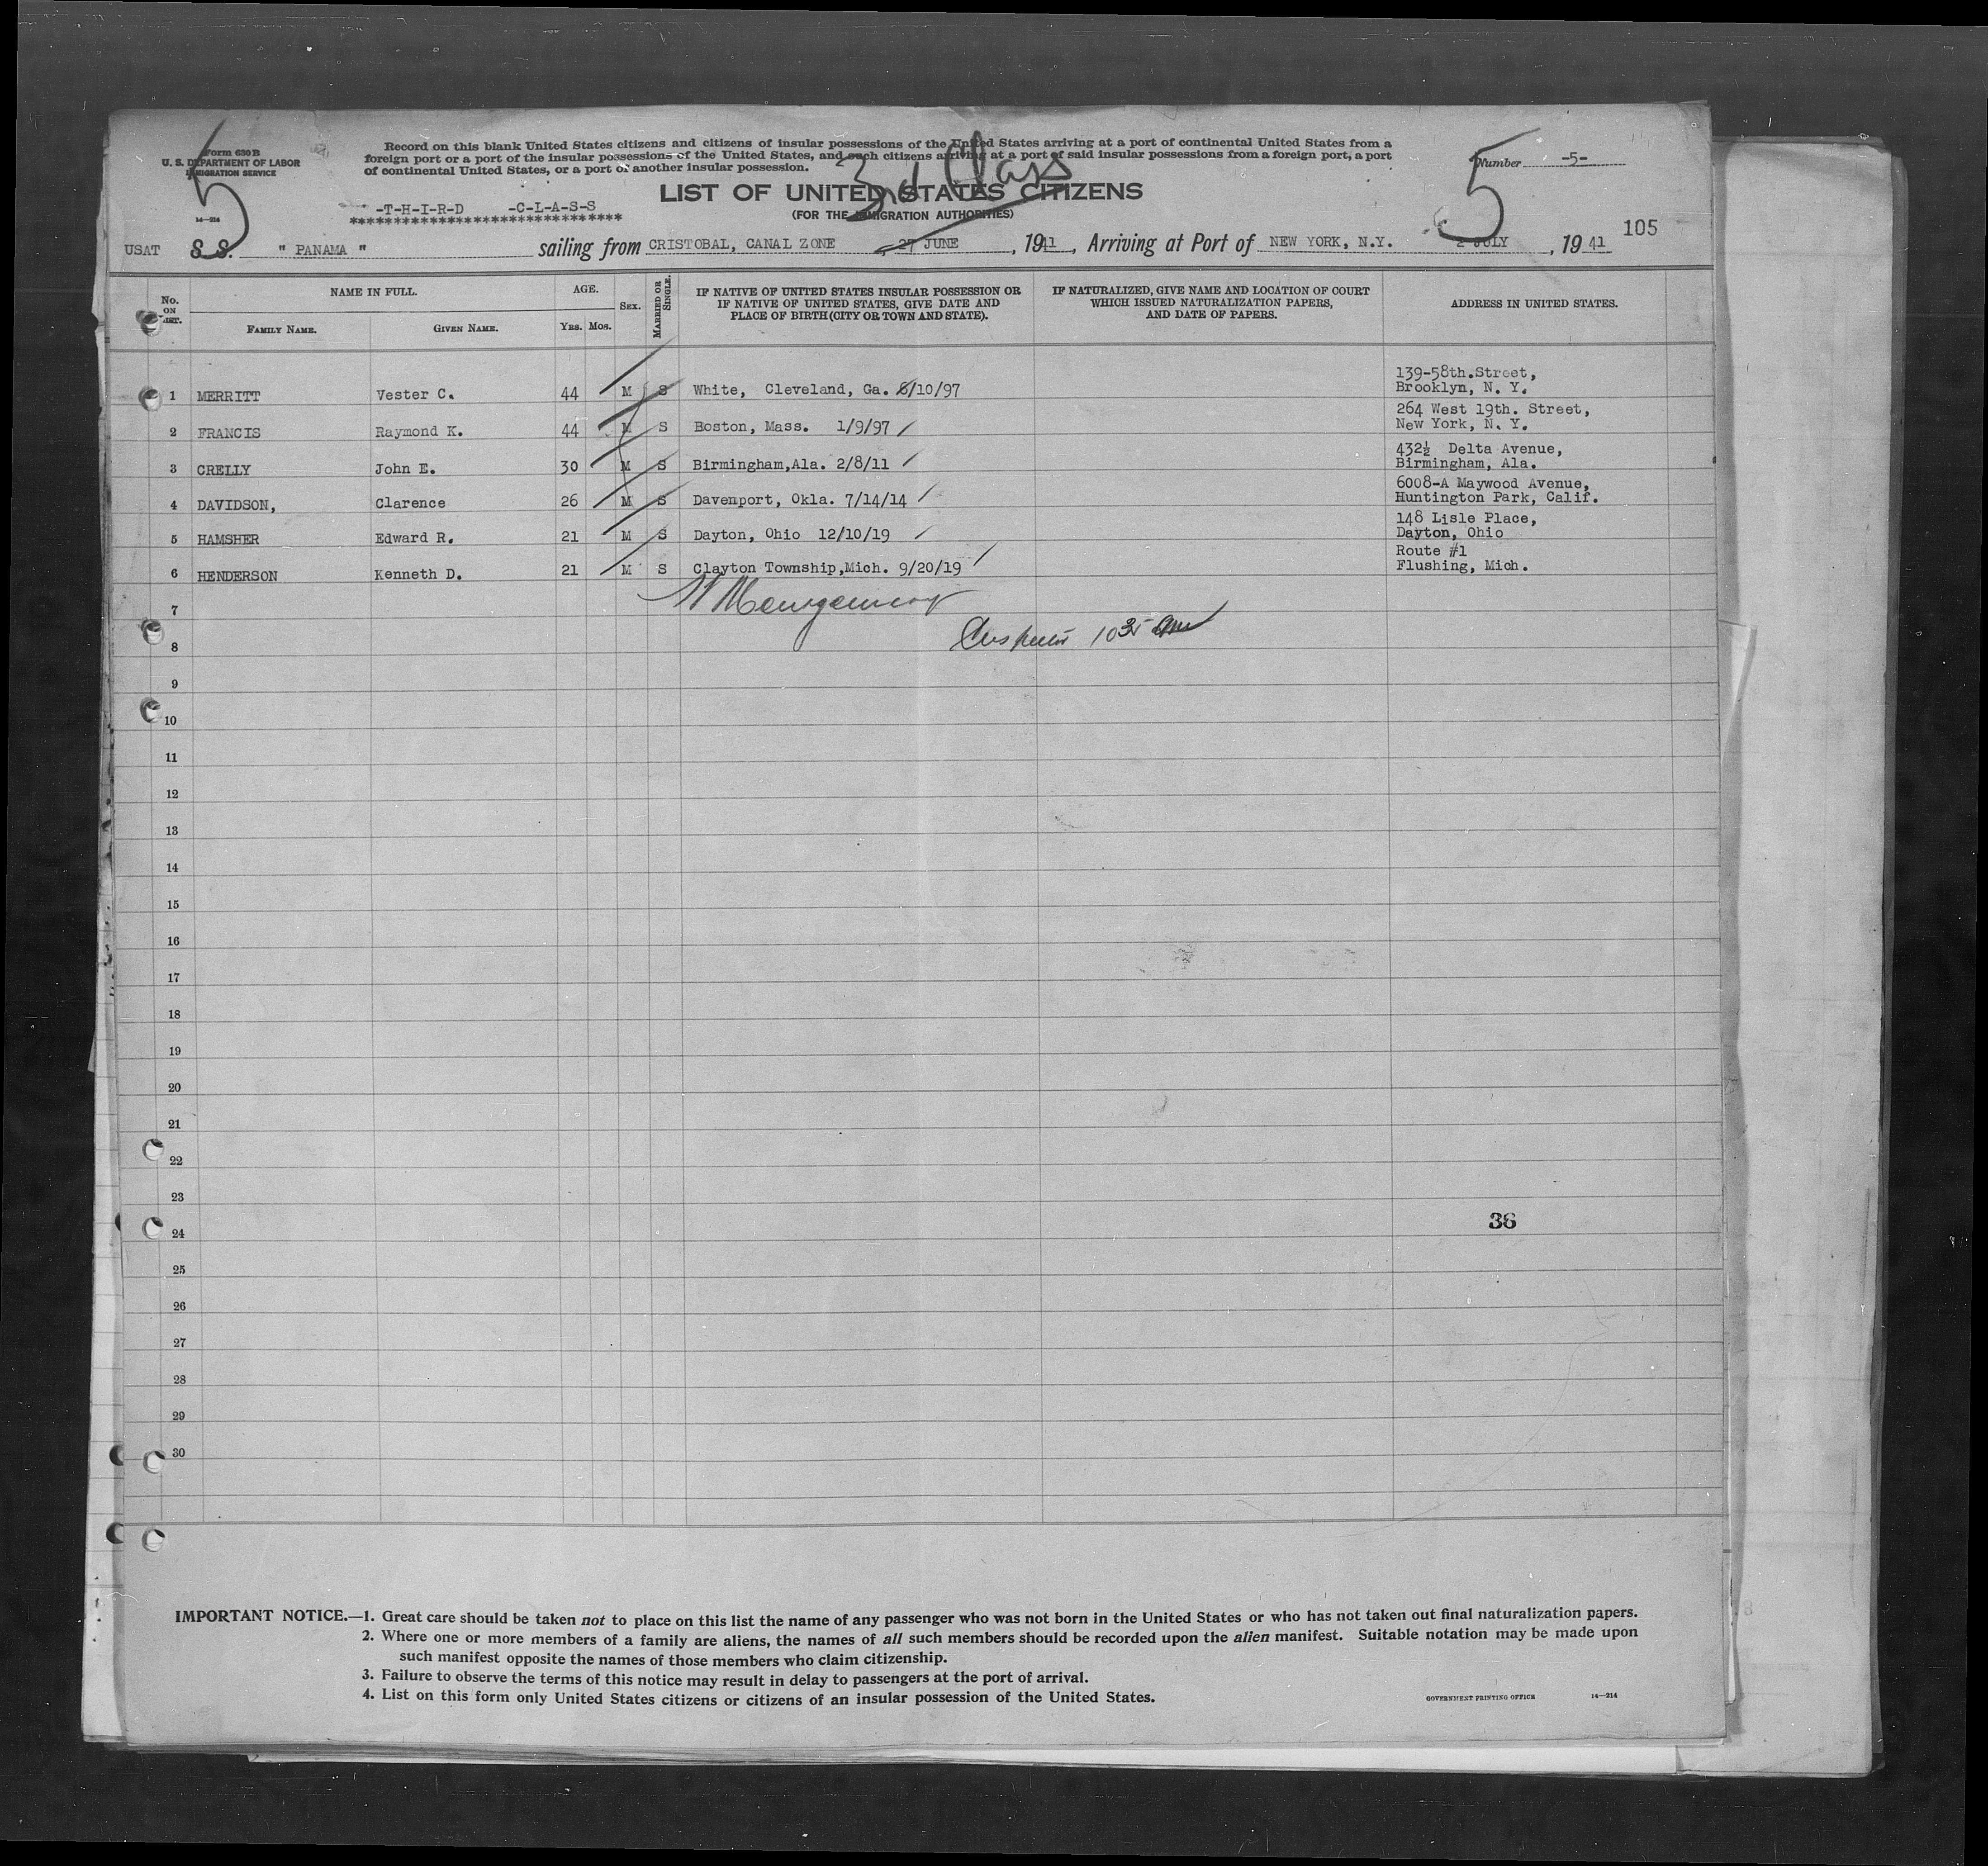 Form 630 B
U. S. DEPARTMENT OF LABOR
IMMIGRATION SERVICE
14—214
Record on this blank United States citizens and citizens of insular possessions of the United States arriving at a port of continental United States from a
foreign port or a port of the insular possessions of the United States, and such citizens arriving at a port of said insular possessions from a foreign port, a port
of continental United States, or a port of another insular possession.
5
3rd Class
5
Number -5-
LIST OF UNITED STATES CITIZENS
(FOR THE IMMIGRATION AUTHORITIES)
-T-H-I-R-D -C-L-A-S-S
******************************
105
USAT S.S. " PANAMA " sailing from CRISTOBAL, CANAL ZONE , 27 JUNE , 1941, Arriving at Port of NEW YORK, N.Y. 2 JULY , 19 41
No. ON LIST.
NAME IN FULL.
FAMILY NAME.
GIVEN NAME.
AGE.
YRS. MOS.
SEX.
MARRIED OR SINGLE.
IF NATIVE OF UNITED STATES INSULAR POSSESSION OR
IF NATIVE OF UNITED STATES, GIVE DATE AND
PLACE OF BIRTH (CITY OR TOWN AND STATE).
IF NATURALIZED, GIVE NAME AND LOCATION OF COURT
WHICH ISSUED NATURALIZATION PAPERS,
AND DATE OF PAPERS.
ADDRESS IN UNITED STATES.
139-58th.Street,
1 MERRITT Vester C. 44 M S White, Cleveland, Ga. 6/10/97 Brooklyn, N. Y.
264 West 19th. Street,
2 FRANCIS Raymond K. 44 M S Boston, Mass. 1/9/97 New York, N. Y.
432½ Delta Avenue,
3 CRELLY John E. 30 M S Birmingham,Ala. 2/8/11 Birmingham, Ala.
6008-A Maywood Avenue,
4 DAVIDSON, Clarence 26 M S Davenport, Okla. 7/14/14 Huntington Park, Calif.
148 Lisle Place,
5 HAMSHER Edward R. 21 M S Dayton, Ohio 12/10/19 Dayton, Ohio
Route #1
6 HENDERSON Kenneth D. 21 M S Clayton Township,Mich. 9/20/19 Flushing, Mich.
7
8
9
10
11
12
13
14
15
16
17
18
19
20
21
22
23
36
24
25
26
27
28
29
30
IMPORTANT NOTICE.—1. Great care should be taken not to place on this list the name of any passenger who was not born in the United States or who has not taken out final naturalization papers.
2. Where one or more members of a family are aliens, the names of all such members should be recorded upon the alien manifest. Suitable notation may be made upon
such manifest opposite the names of those members who claim citizenship.
3. Failure to observe the terms of this notice may result in delay to passengers at the port of arrival.
4. List on this form only United States citizens or citizens of an insular possession of the United States.
GOVERNMENT PRINTING OFFICE 14—214